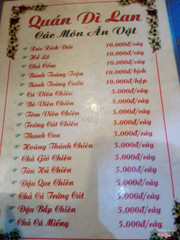 Quán Dì Lan
Các Món Ăn Vặt
Xúc Xích Đức 10.000đ/cây
Hồ Lô 10.000đ/cây
Chả Cốm 10.000đ/cây
Bánh Tráng Trộn 10.000đ/bịch
Bánh Tráng Cuốn 10.000đ/hộp
Cá Viên Chiên 5.000đ/cây
Bò Viên Chiên 5.000đ/cây
Tôm Viên Chiên 5.000đ/cây
Trứng Cút Chiên 5.000đ/cây
Thanh Cua 5.000đ/cây
Hoành Thánh Chiên 5.000đ/cây
Chả Giò Chiên 5.000đ/cây
Tàu Hủ Chiên 5.000đ/cây
Đậu Que Chiên 5.000đ/cây
Chả Cá Trứng Cút 5.000đ/cây
Đậu Bắp Chiên 5.000đ/cây
Chả Cá Miếng 5.000đ/cây